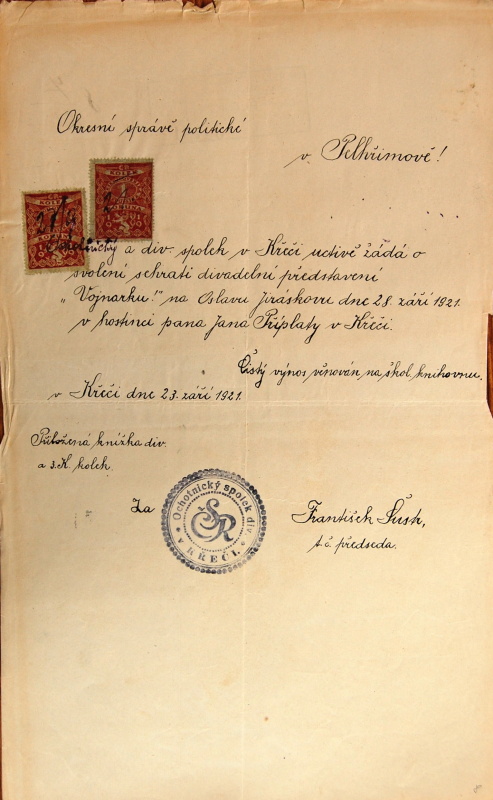 Okresní správě politické
v Pelhřimově!
KOLEK
KORUNA
Ochotnický a div. spolek v Křeči uctivě žádá o
svolení sehrati divadelní představení
„Vojnarku!" na Oslavu Jiráskovu dne 28. září 1921.
v hostinci pana Jana Příplaty v Křeči.
Čistý výnos věnován na škol. knihovnu.
v Křeči dne 23. září 1921.
Přiložená knížka div.
a 3. K. kolek.
Za
Ochotnický spolek div.
v KŘEČI.
František Šush,
t. č. předseda.